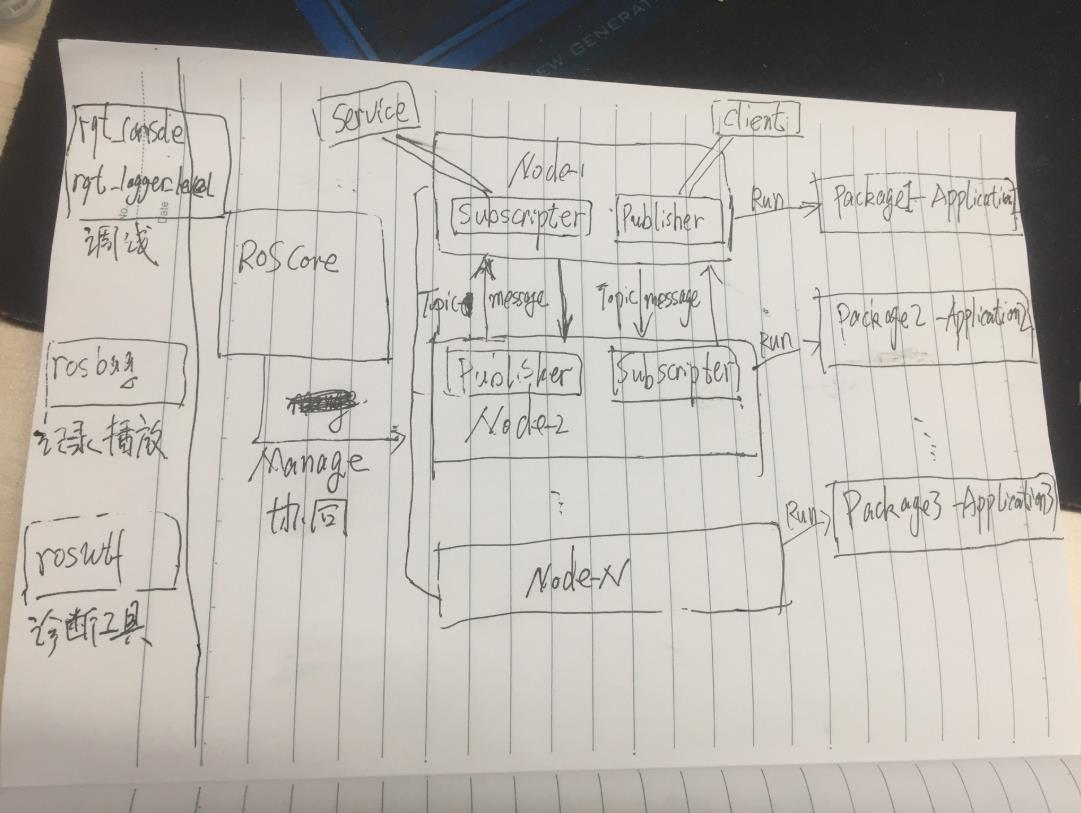 NEW GENERATI
rqt_console
rqt_logger_level
No.
Date
调线
rosbag
记录播放
roswtf
诊断工具
ROSCore
Manage
协同
Service
client
Node-1
Subscripter
Publisher
Topic
message
Topic
message
Publisher
Subscripter
Node-2
Node-N
Run
Package1-Application1
Run
Package2-Application2
Run
Package3-Application3